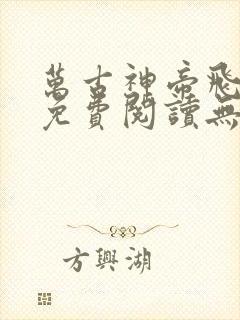 萬古神帝飛
免費閱讀無
方興湖